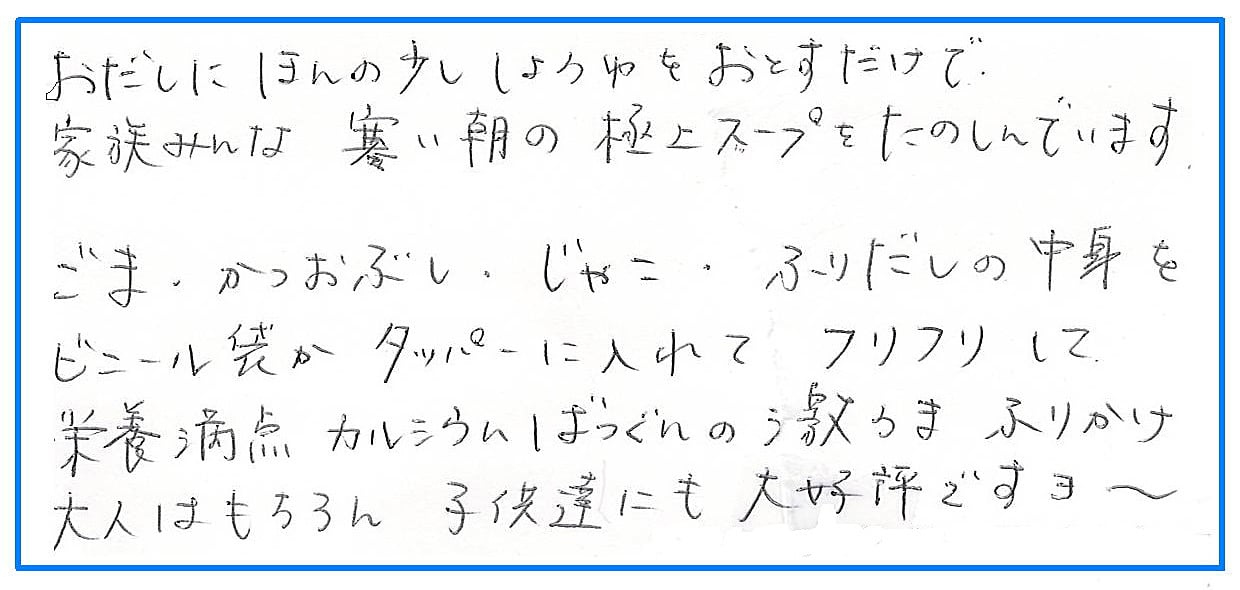 おだしにほんの少ししょうゆをおとすだけで.
家族みんな 寒い朝の 極上スープをたのしんでいます.
ごま・かつおぶし・じゃこ・ふりだしの中身を
ビニール袋か タッパーに入れて フリフリして
栄養満点 カルシウムばつぐんの激うま ふりかけ
大人はもちろん 子供達にも 大好評ですヨ〜